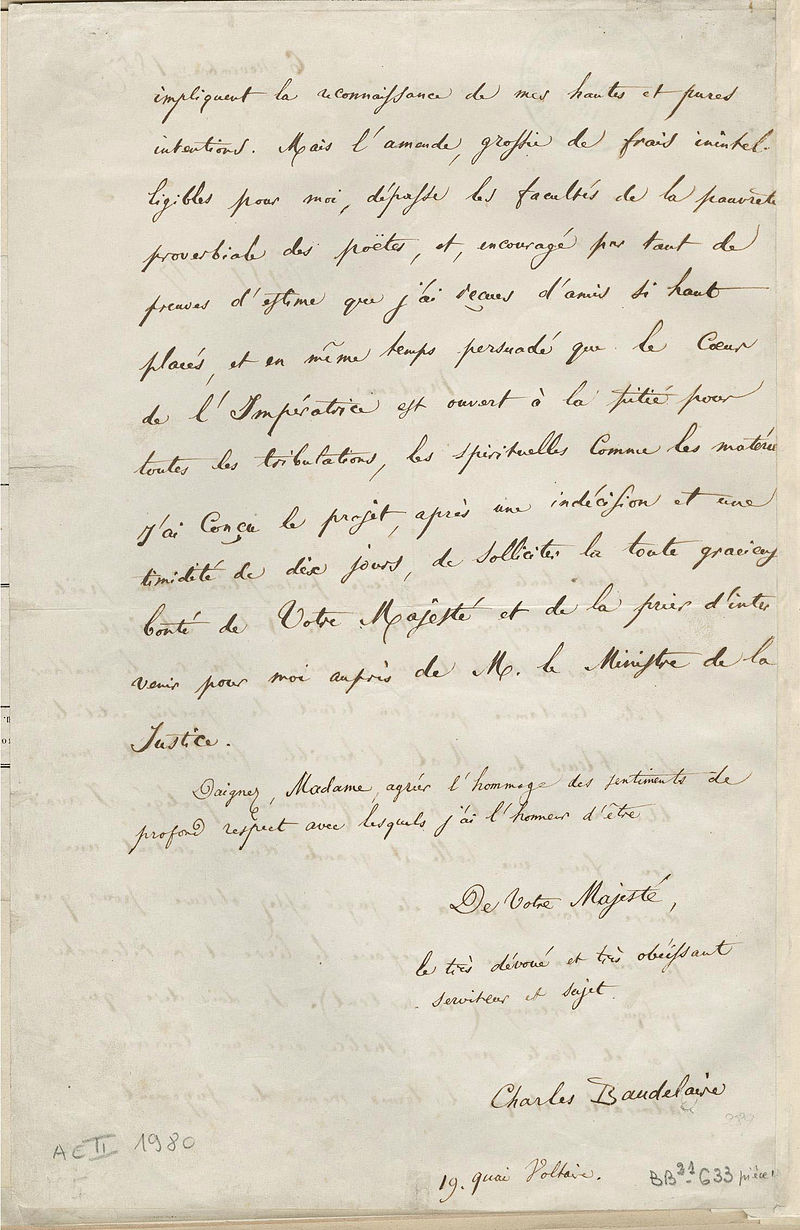 impliquent la reconnaissance de mes hautes et pures
intentions. Mais l'amende, grossie de frais inintel-
ligibles pour moi, dépasse les facultés de la pauvreté
proverbiale des poëtes, et, encouragé par tant de
preuves d'estime que j'ai reçues d'amis si haut
placés, et en même temps persuadé que le Cœur
de l'Impératrice est ouvert à la pitié pour
toutes les tribulations, les spirituelles comme les matérie
j'ai conçu le projet, après une indécision et une
timidité de dix jours, de solliciter la toute gracieus
bonté de Votre Majesté et de la prier d'inter
venir pour moi auprès de M. le Ministre de la
Justice.
Daignez, Madame, agréer l'hommage des sentiments de
profond respect avec lesquels j'ai l'honneur d'être
De Votre Majesté,
le très dévoué et très obéissant
serviteur et sujet
Charles Baudelaire
19. quai Voltaire.
AE II 1980
BB 21 - 633 pièce